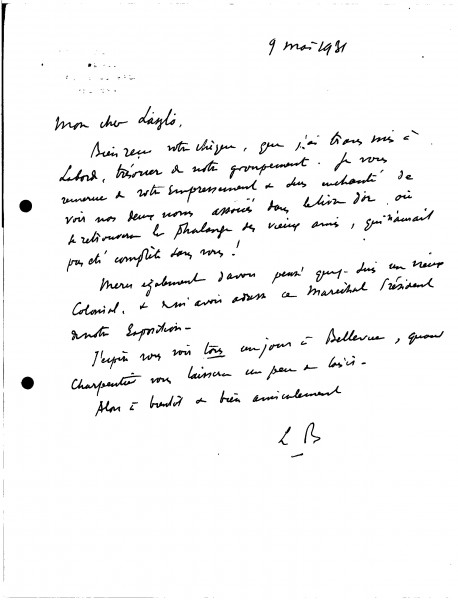 9 mai 1931
Mon cher László,
Bien reçu votre chèque, que j'ai transmis à
Labord, trésorier de notre groupement. Je vous
remercie de votre empressement & suis enchanté de
voir nos deux noms associés dans le livre d'or où
se retrouvera la phalange des vieux amis, qui n'aurait
pas été complète sans vous !
Merci également d'avoir pensé que je suis un vieux
Colonial, & m'avoir adressé ce Maréchal Président
de notre Exposition -
J'espère vous voir tous un jour à Bellevue, quand
Charpentier vous laissera un peu de loisir -
Alors à bientôt & bien amicalement
L B